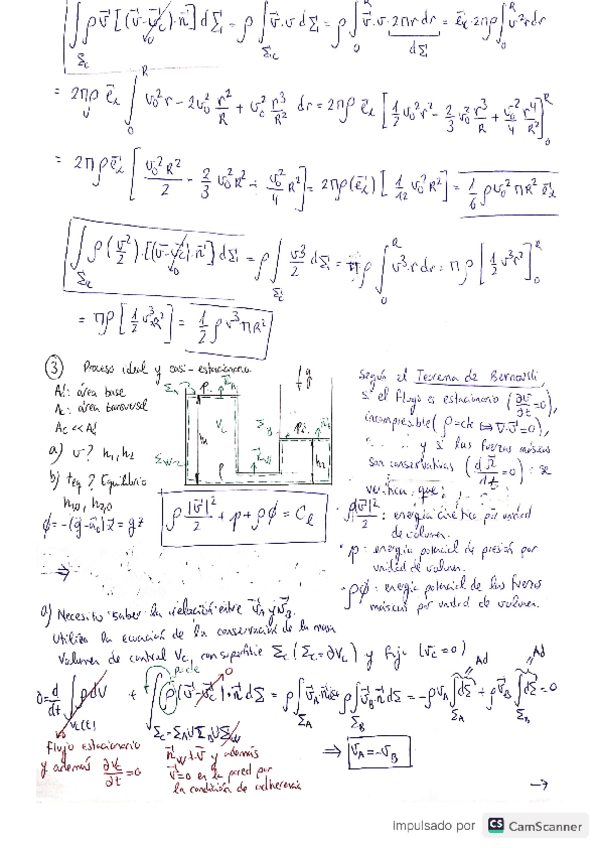 ∫∫_Σc ρv⃗ [(v⃗-v⃗c)·n⃗] dΣ = ρ ∫_Σc v⃗·v dΣ = ρ ∫_0^R v⃗·v·2πrdr = e⃗x·2πρ ∫_0^R v²rdr
dΣ
= 2πρ e⃗x ∫_0^R v0²r - 2v0² r²/R + v0² r³/R² dr = 2πρ e⃗x [1/2 v0²r² - 2/3 v0² r³/R + v0²/4 r⁴/R²]_0^R
= 2πρe⃗x [v0²R²/2 - 2/3 v0²R² + v0²/4 R²] = 2πρ(e⃗x) [1/12 v0²R²] = 1/6 ρv0² πR² e⃗x
∫_Σc ρ(v²/2)·[(v⃗-v⃗c)·n⃗] dΣ = ρ ∫_Σc v³/2 dΣ = πρ ∫_0^R v³·rdr = πρ [1/2 v³r²]_0^R
= πρ [1/2 v³R²] = 1/2 ρv³πR²
③ Proceso ideal y casi-estacionario
Ad: área base
Ac: área transversal
Ac << Ad
a) v? h1, h2
b) teq? Equilibrio
h10, h20
φ = -(g⃗-a⃗0)·x⃗ = gz
ρ |v⃗|²/2 + p + ρφ = Cl
Según el Teorema de Bernoulli,
si el flujo es estacionario (∂v⃗/∂t=0),
incompresible (ρ=cte ⟺ ∇·v⃗=0),
y si las fuerzas másicas
son conservativas : se
verifica que:
· ρ|v⃗|²/2 : energía cinética por unidad
de volumen.
· p : energía potencial de presión por
unidad de volumen.
· ρφ : energía potencial de las fuerzas
másicas por unidad de volumen.
a) Necesito saber la relación entre v⃗A y v⃗B.
Utilizo la ecuación de la conservación de la masa
Volumen de control Vc, con superficie Σc (Σc=∂Vc) y fijo (v⃗c=0)
0 = d/dt ∫_Vc(t) ρdV + ∫_Σc=ΣA∪ΣB∪ΣW ρ(v⃗-v⃗c)·n⃗ dΣ = ρ∫_ΣA v⃗A·n⃗dΣ + ρ∫_ΣB v⃗B·n⃗dΣ = -ρvA ∫_ΣA dΣ + ρv⃗B ∫_ΣB dΣ = 0
ρ=cte
Ad
Ad
flujo estacionario
y además ∂Vc/∂t=0
n⃗W⊥v⃗ y además
v⃗=0 en la pared por
la condición de adherencia
⟹ v⃗A = -v⃗B
Impulsado por CS CamScanner